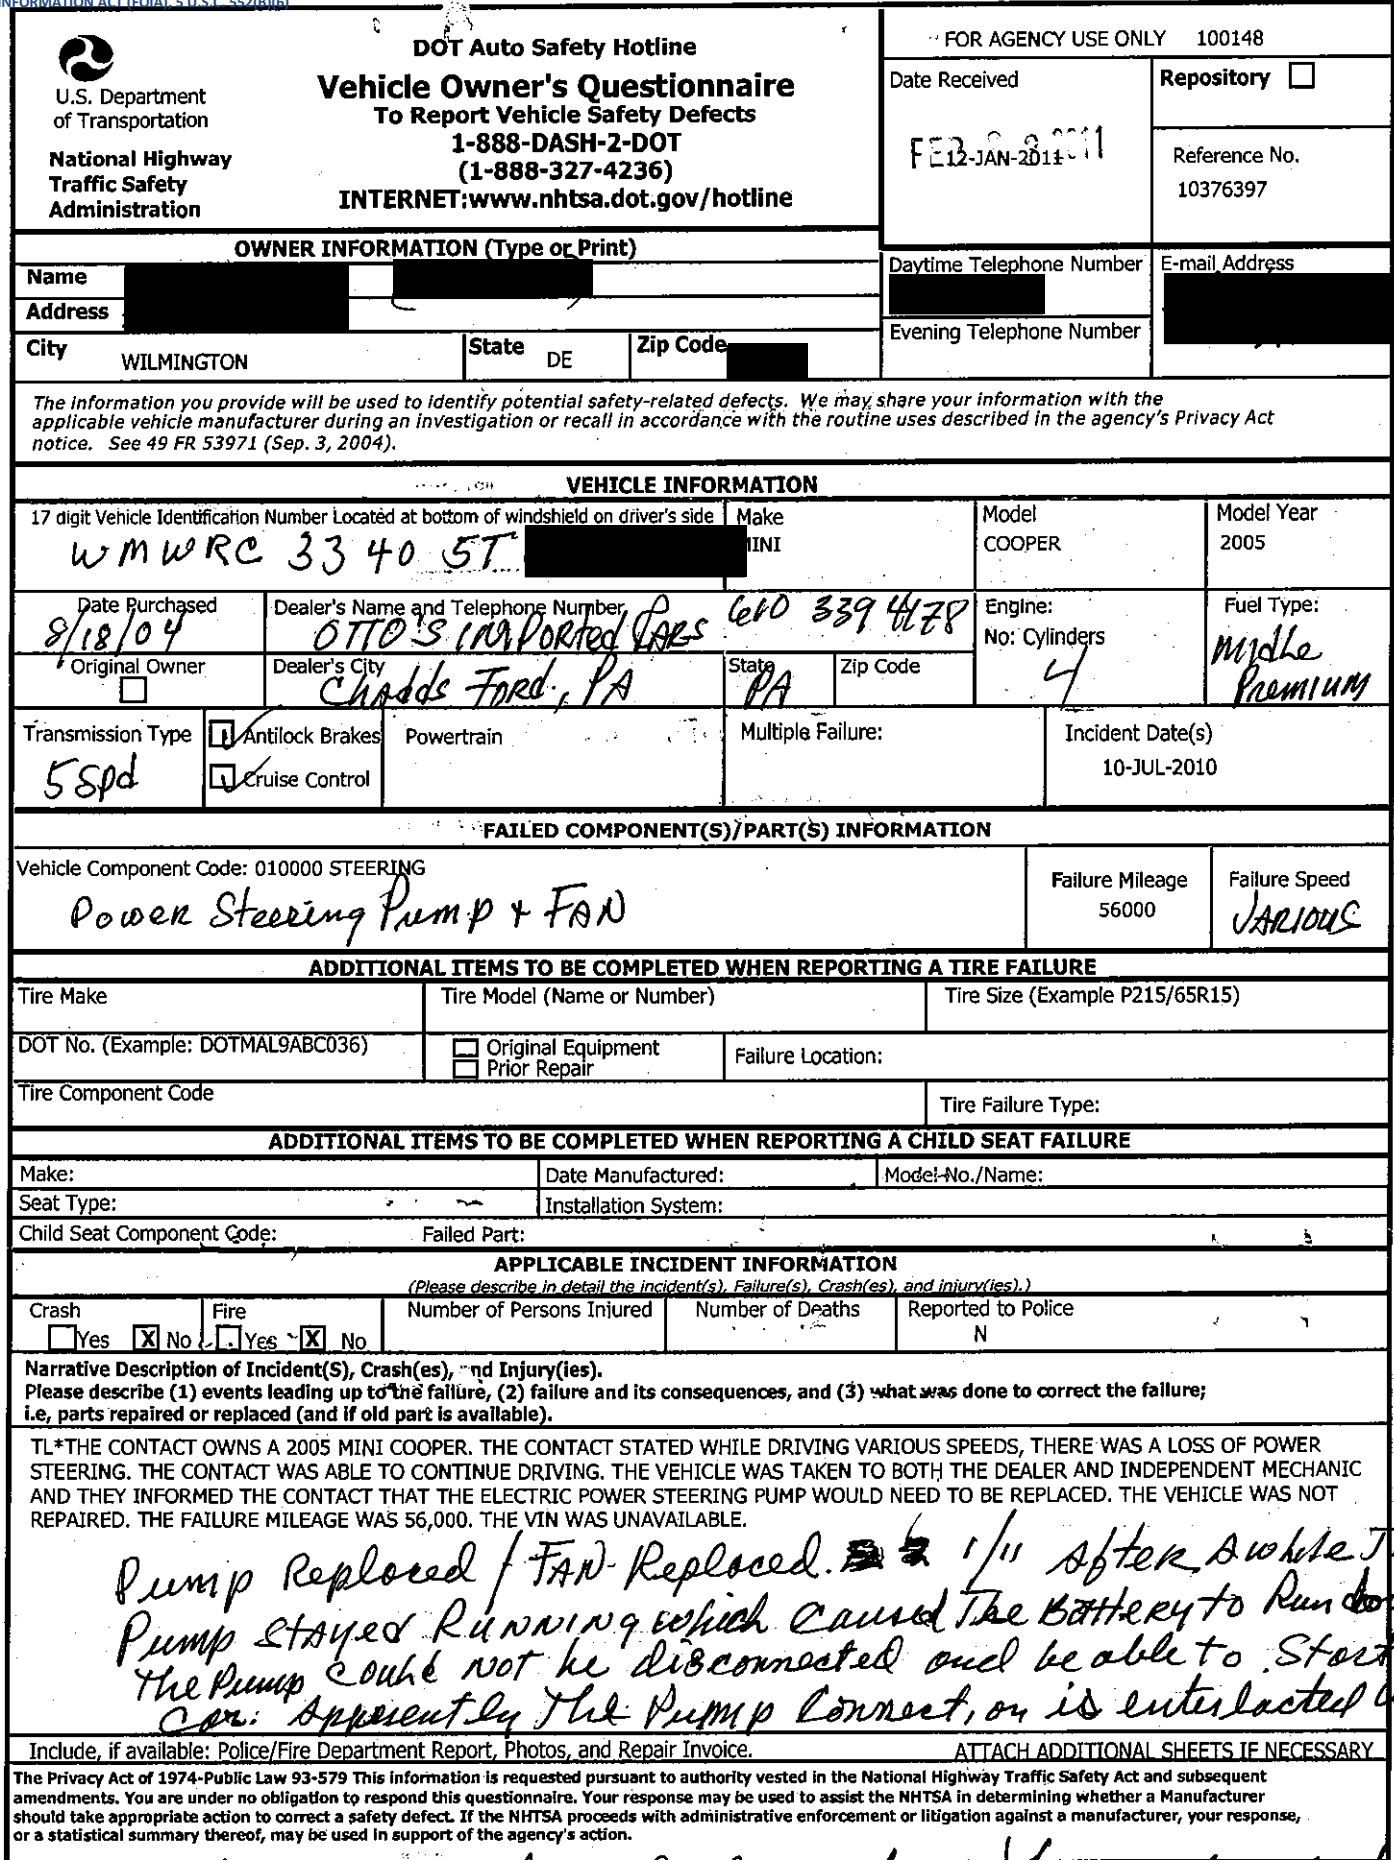 INFORMATION ACT (FOIA), 5 U.S.C. 552(B)(6)
DOT Auto Safety Hotline
Vehicle Owner's Questionnaire
To Report Vehicle Safety Defects
1-888-DASH-2-DOT
(1-888-327-4236)
INTERNET:www.nhtsa.dot.gov/hotline
U.S. Department
of Transportation
National Highway
Traffic Safety
Administration
FOR AGENCY USE ONLY 100148
Date Received
FEB 2011
12-JAN-2011
Repository
Reference No.
10376397
OWNER INFORMATION (Type or Print)
Name
Address
City WILMINGTON State DE Zip Code
Daytime Telephone Number
Evening Telephone Number
E-mail Address
The information you provide will be used to identify potential safety-related defects. We may share your information with the
applicable vehicle manufacturer during an investigation or recall in accordance with the routine uses described in the agency's Privacy Act
notice. See 49 FR 53971 (Sep. 3, 2004).
VEHICLE INFORMATION
17 digit Vehicle Identification Number Located at bottom of windshield on driver's side
WMWRC 33 40 5T
Make
INI
Model
COOPER
Model Year
2005
Date Purchased
8/18/04
Dealer's Name and Telephone Number
OTTO'S IMPORTED CARS 610 339 4178
Engine:
No: Cylinders
4
Fuel Type:
Midle
Premium
Original Owner
Dealer's City
Chadds Ford., PA
State
PA
Zip Code
Transmission Type
5 spd
Antilock Brakes
Cruise Control
Powertrain
Multiple Failure:
Incident Date(s)
10-JUL-2010
FAILED COMPONENT(S)/PART(S) INFORMATION
Vehicle Component Code: 010000 STEERING
Power Steering Pump + FAN
Failure Mileage
56000
Failure Speed
VARIOUS
ADDITIONAL ITEMS TO BE COMPLETED WHEN REPORTING A TIRE FAILURE
Tire Make
Tire Model (Name or Number)
Tire Size (Example P215/65R15)
DOT No. (Example: DOTMAL9ABC036)
Original Equipment
Prior Repair
Failure Location:
Tire Component Code
Tire Failure Type:
ADDITIONAL ITEMS TO BE COMPLETED WHEN REPORTING A CHILD SEAT FAILURE
Make:
Date Manufactured:
Model No./Name:
Seat Type:
Installation System:
Child Seat Component Code:
Failed Part:
APPLICABLE INCIDENT INFORMATION
(Please describe in detail the incident(s), Failure(s), Crash(es), and injury(ies).)
Crash
Yes X No
Fire
Yes X No
Number of Persons Injured
Number of Deaths
Reported to Police
N
Narrative Description of Incident(S), Crash(es), and Injury(ies).
Please describe (1) events leading up to the failure, (2) failure and its consequences, and (3) what was done to correct the failure;
i.e, parts repaired or replaced (and if old part is available).
TL*THE CONTACT OWNS A 2005 MINI COOPER. THE CONTACT STATED WHILE DRIVING VARIOUS SPEEDS, THERE WAS A LOSS OF POWER
STEERING. THE CONTACT WAS ABLE TO CONTINUE DRIVING. THE VEHICLE WAS TAKEN TO BOTH THE DEALER AND INDEPENDENT MECHANIC
AND THEY INFORMED THE CONTACT THAT THE ELECTRIC POWER STEERING PUMP WOULD NEED TO BE REPLACED. THE VEHICLE WAS NOT
REPAIRED. THE FAILURE MILEAGE WAS 56,000. THE VIN WAS UNAVAILABLE.
Pump Replaced / FAN Replaced. 1/11 After Awhile
Pump stayed Running which caused The Battery to Run
The Pump could not be disconnected and be able to Start
Car: Apparently The Pump Connection is enterlacted
Include, if available: Police/Fire Department Report, Photos, and Repair Invoice.
ATTACH ADDITIONAL SHEETS IF NECESSARY
The Privacy Act of 1974-Public Law 93-579 This information is requested pursuant to authority vested in the National Highway Traffic Safety Act and subsequent
amendments. You are under no obligation to respond this questionnaire. Your response may be used to assist the NHTSA in determining whether a Manufacturer
should take appropriate action to correct a safety defect. If the NHTSA proceeds with administrative enforcement or litigation against a manufacturer, your response,
or a statistical summary thereof, may be used in support of the agency's action.